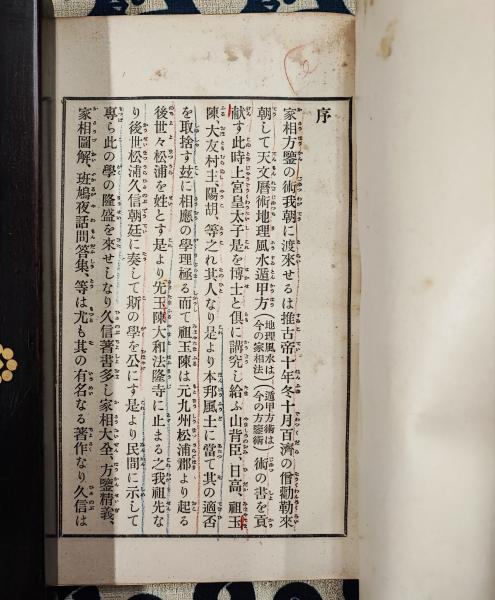 序
家相方鑒の術我朝に渡來せるは推古帝十年冬十月百濟の僧勸勒來
朝して天文曆術地理風水遁甲方（地理風水は今の家相法）（遁甲方術は今の方鑒術）術の書を貢
献す此時上宮皇太子是を博士と俱に講究し給ふ山背臣、日高、祖玉
陳、大友村主陽胡、等之れ其人なり是より本邦風土に當て其の適否
を取捨す玆に相應の學理極る而て祖玉陳は元九州松浦郡より起る
後世々松浦を姓とす是より先玉陳大和法隆寺に止まる之我祖先な
り後世松浦久信朝廷に奏して斯の學を公にす是より民間に示して
專ら此の學の隆盛を來せしなり久信著書多し家相大全、方鑒精義、
家相圖解、班鳩夜話問答集、等は尤も其の有名なる著作なり久信は